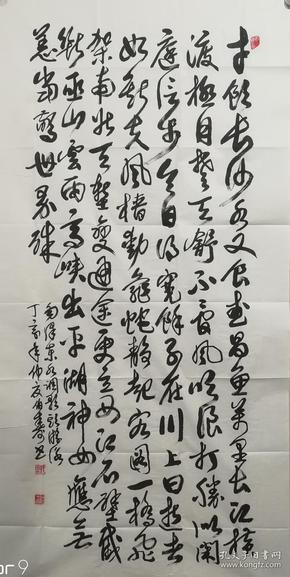 才饮长沙水又食武昌鱼万里长江横
渡极目楚天舒不管风吹浪打胜似闲
庭信步今日得宽馀子在川上曰逝者
如斯夫风樯动龟蛇静起宏图一桥飞
架南北天堑变通途更立西江石壁截
断巫山云雨高峡出平湖神女应无
恙当惊世界殊
毛泽东水调歌头游泳
丁亥年仲夏
孔夫子旧书网
or 9